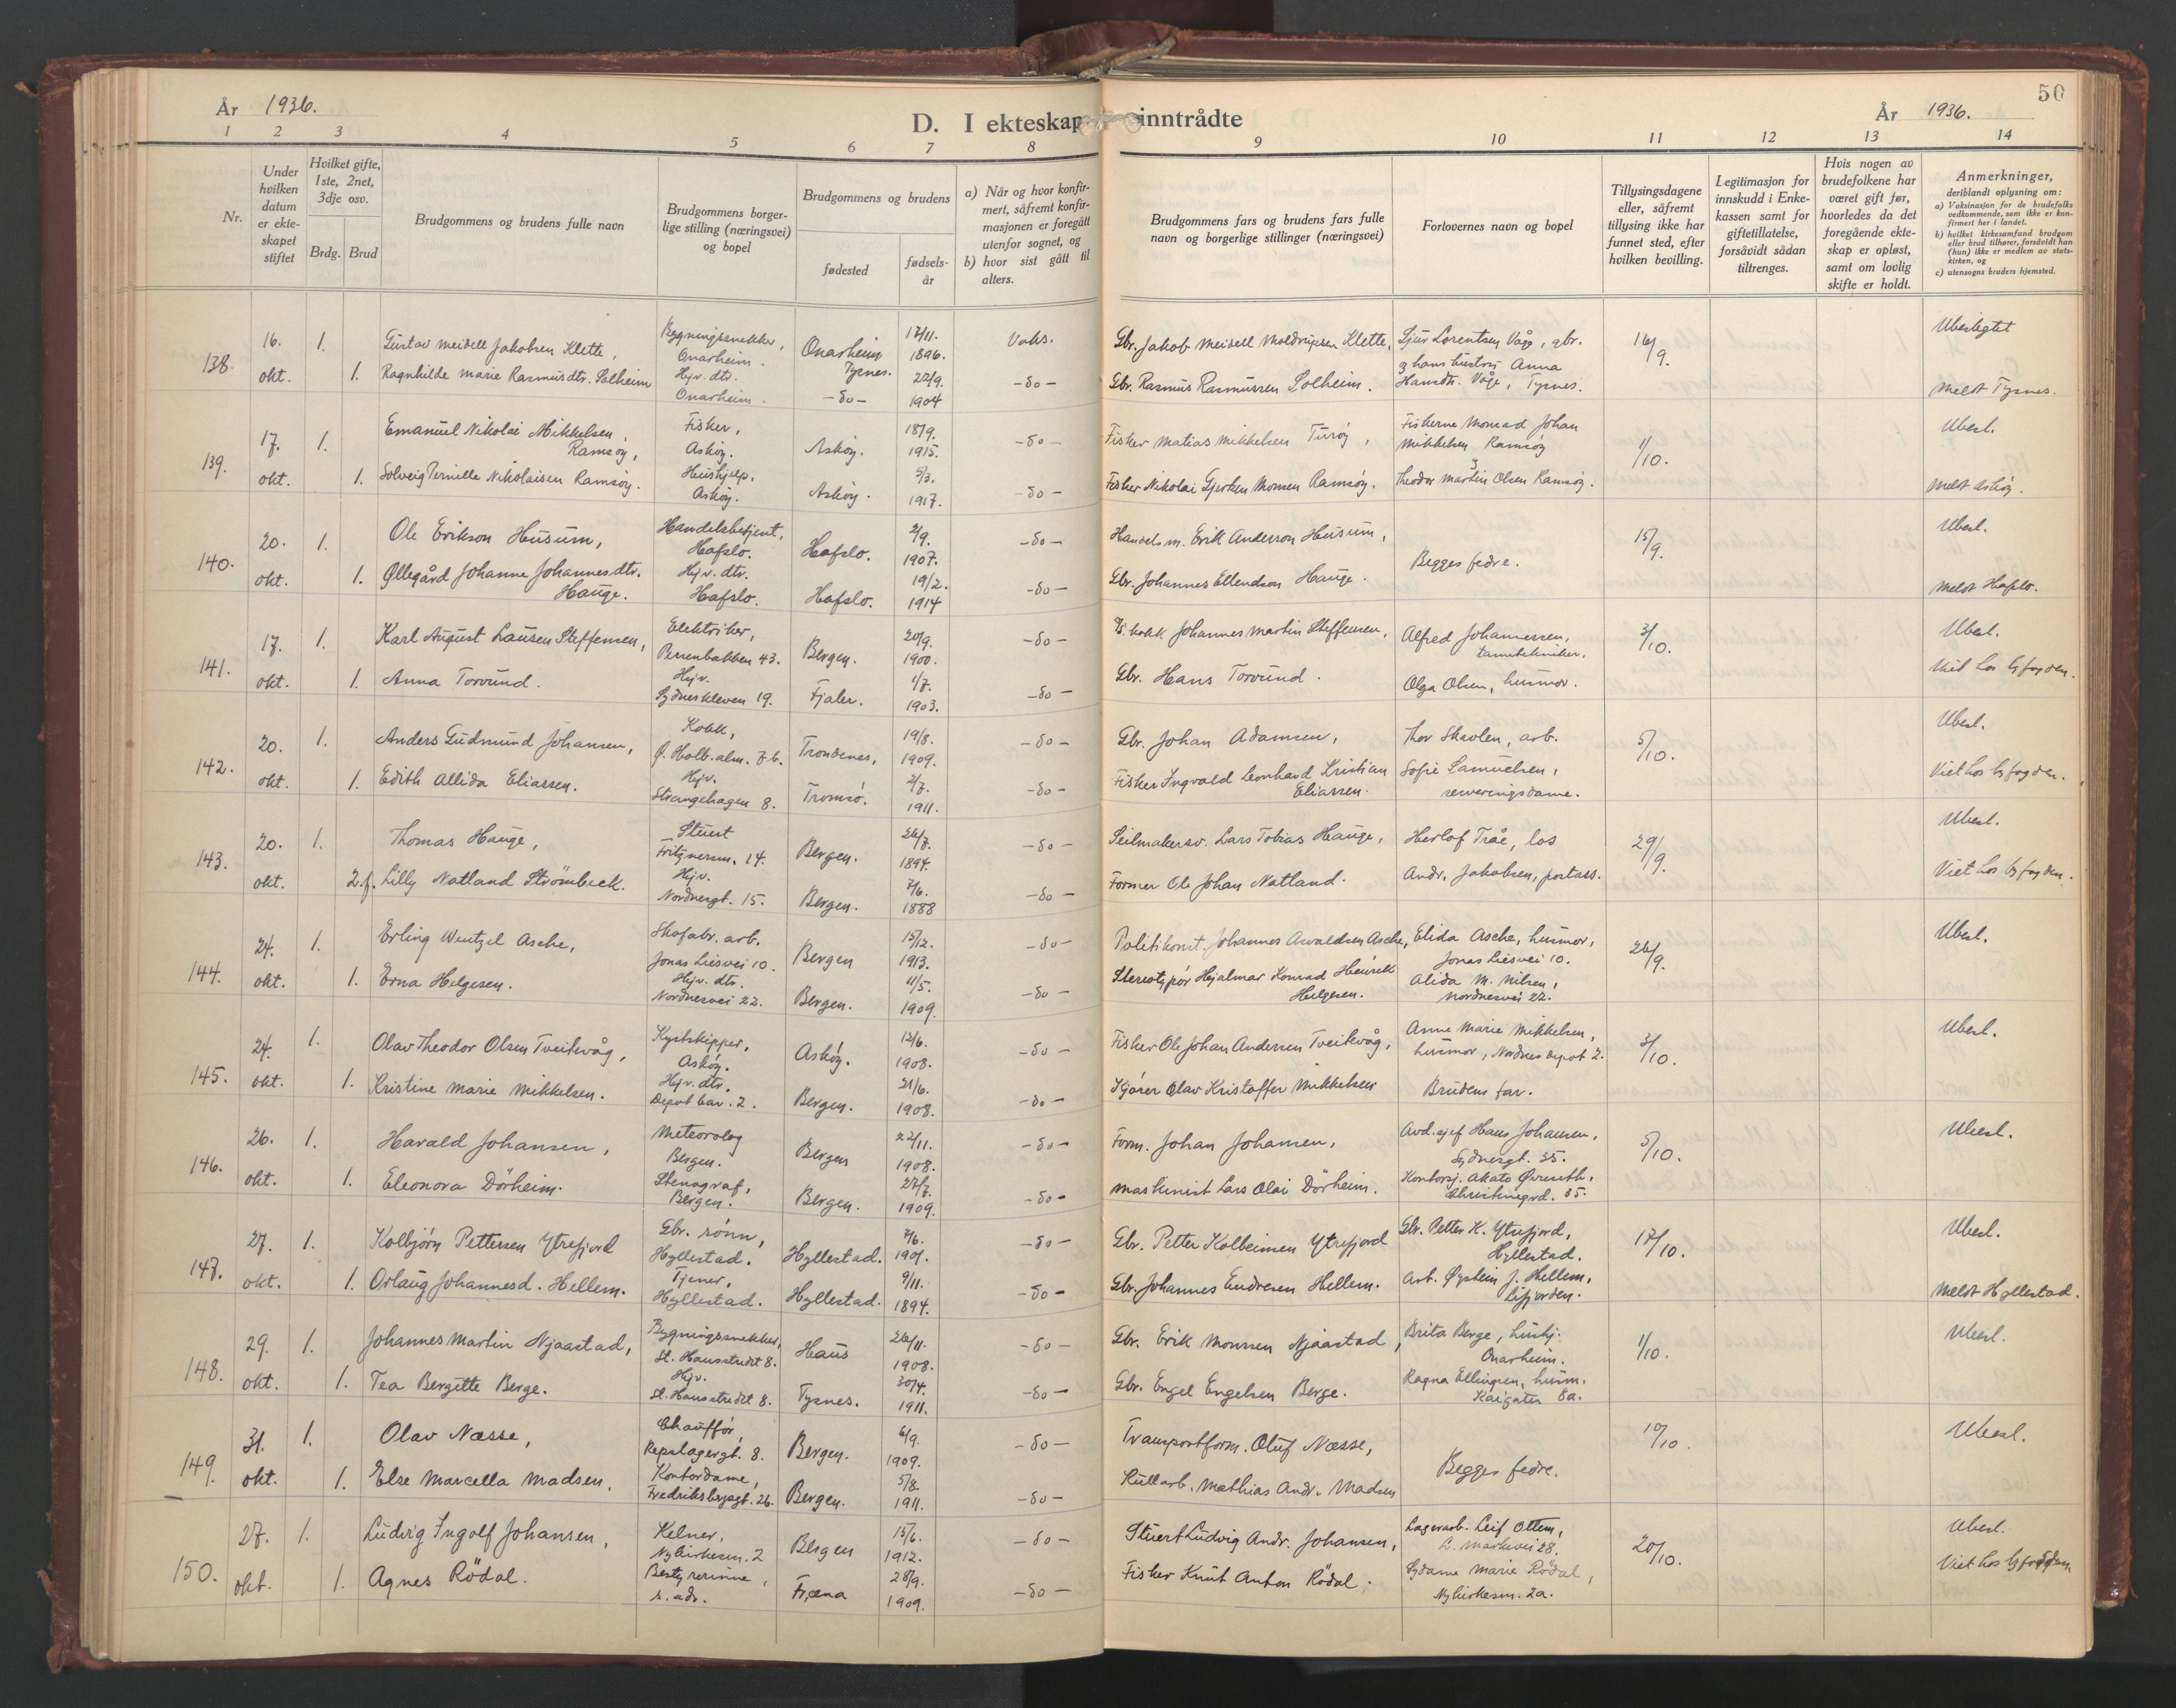 År 1936.
D. I ekteskap inntrådte
År 1936.
50
1 2 3 4 5 6 7 8 9 10 11 12 13 14
Nr.
Under hvilken datum er ekte-skapet stiftet
Hvilket gifte, 1ste, 2net, 3dje osv.
Brdg. Brud
Brudgommens og brudens fulle navn
Brudgommens borger-lige stilling (næringsvei) og bopel
Brudgommens og brudens
fødested
fødsels-år
a) Når og hvor konfir-mert, såfremt konfir-masjonen er foregått utenfor sognet, og
b) hvor sist gått til alters.
Brudgommens fars og brudens fars fulle navn og borgerlige stillinger (næringsvei)
Forlovernes navn og bopel
Tillysingsdagene eller, såfremt tillysing ikke har funnet sted, efter hvilken bevilling.
Legitimasjon for innskudd i Enke-kassen samt for giftetillatelse, forsåvidt sådan tiltrenges.
Hvis nogen av brudefolkene har været gift før, hvorledes da det foregående ekte-skap er opløst, samt om lovlig skifte er holdt.
Anmerkninger, deriblandt oplysning om:
a) Vaksinasjon for de brudefolks vedkommende, som ikke er kon-firmert her i landet.
b) hvilket kirkesamfund brudgom eller brud tilhører, forsåvidt han (hun) ikke er medlem av stats-kirken, og
c) utensogns bruders hjemsted.
138. 16. okt. 1. Gustav Meidell Jakobsen Klette, Bygningssnekker, Onarheim. Onarheim Tysnes. 17/11. 1896. Vaks. Gbr. Jakob Meidell Moldrupsen Klette, Sjur Lorentsen Våge, gbr. & hans hustru Anna 16/9. Ubeslegtet
1. Ragnhilde Marie Rasmusdtr. Solheim Hjv. dtr. Onarheim. -do- 22/9. 1904 -do- Gbr. Rasmus Rasmussen Solheim. Hansdtr. Våge, Tysnes. Meldt Tysnes.
139. 17. okt. 1. Emanuel Nikolai Mikkelsen Ramsøy, Fisker, Askøy. Askøy. 18/9. 1915. -do- Fisker Matias Mikkelsen Turøy, Fiskerne Monrad Johan Mikkelsen Ramsøy & 1/10. Ubesl.
1. Solveig Pernille Nikolaisen Ramsøy. Hushjelp. Askøy. Askøy. 5/3. 1917. -do- Fisker Nikolai Gjerken Monsen Ramsøy. Theodor Martin Olsen Ramsøy. Meldt Askøy.
140. 20. okt. 1. Ole Erikson Husum, Handelsbetjent, Hafslo. Hafslo. 2/9. 1907. -do- Handelsm. Erik Anderson Husum, Begges fedre. 15/9. Ubesl.
1. Øllegård Johanne Johannesdtr. Hauge. Hjv. dtr. Hafslo. Hafslo. 19/2. 1914 -do- Gbr. Johannes Ellendson Hauge. Meldt Hafslo.
141. 17. okt. 1. Karl August Lausen Steffensen, Elektriker, Persenbakken 43. Bergen. 20/9. 1900. -do- kokk Johannes Martin Steffensen, Alfred Johannessen, tanntekniker. 3/10. Ubesl.
1. Anna Torvund. Hjv. Sydneskleven 19. Fjaler. 1/7. 1903. -do- Gbr. Hans Torvund. Olga Olsen, husmor. Viet hos byfogden.
142. 20. okt. 1. Anders Gudmund Johansen, Kokk, Ø. Holb. alm. 7b. Trondenes, 19/8. 1909. -do- Gbr. Johan Adamsen, Thor Skavlen, arb. 5/10. Ubesl.
1. Edith Allida Eliassen. Hjv. Strangehagen 8. Tromsø. 2/7. 1911. -do- Fisker Ingvald Leonhard Kristian Eliassen. Sofie Samuelsen, serveringsdame. Viet hos byfogden.
143. 20. okt. 1. Thomas Hauge, Stuert Fritznersm. 14. Bergen. 26/7. 1894. -do- Seilmakersv. Lars Tobias Hauge, Herlof Tråe, los 29/9. Ubesl.
2.f. Lilly Natland Strömbeck. Hjv. Nordnesgt. 15. Bergen. 7/6. 1888 -do- Former Ole Johan Natland. Andr. Jakobsen, postass. Viet hos byfogden.
144. 24. okt. 1. Erling Wentzel Asche, Skofabr. arb. Jonas Liesvei 10. Bergen 15/12. 1913. -do- Politikonst. Johannes Osvaldsen Asche, Elida Asche, husmor, Jonas Liesvei 10. 26/9. Ubesl.
1. Erna Helgesen. Hjv. dtr. Nordnesvei 22. Bergen. 11/5. 1909. -do- Stereotypør Hjalmar Konrad Henrik Helgesen. Alida M. Nilsen, Nordnesvei 22.
145. 24. okt. 1. Olav Theodor Olsen Tveitevåg, Kystskipper, Askøy. Askøy. 12/6. 1908. -do- Fisker Ole Johan Andersen Tveitevåg, Anne Marie Mikkelsen, husmor, Nordnes depot 2. 3/10. Ubesl.
1. Kristine Marie Mikkelsen. Hjv. dtr. Depot bar. 2. Bergen. 21/6. 1908. -do- Kjører Olav Kristoffer Mikkelsen Brudens far.
146. 26. okt. 1. Harald Johansen, Meteorolog Bergen. Bergen 22/11. 1908. -do- Form. Johan Johansen, Avd. sjef Hans Johansen, Sydnesgt. 35. 5/10. Ubesl.
1. Eleonora Dörheim. Stenograf, Bergen. Bergen. 27/7. 1909. -do- Maskinist Lars Olai Dörheim. Christiesgrd. 35.
147. 27. okt. 1. Kolbjørn Pettersen Ytrefjord Gbr. sønn, Hyllestad. Hyllestad. 7/6. 1901. -do- Gbr. Petter Kolbeinsen Ytrefjord Gbr. Petter K. Ytrefjord, Hyllestad. 17/10. Ubesl.
1. Orlaug Johannesd. Hellem. Tjener, Hyllestad. Hyllestad. 9/11. 1894. -do- Gbr. Johannes Endresen Hellem. Arb. Øystein J. Hellem, Lifjorden. Meldt Hyllestad.
148. 29. okt. 1. Johannes Martin Njaastad, Bygningssnekker, St. Hansstredet 8. Haus 26/11. 1908. -do- Gbr. Erik Monssen Njaastad, Brita Berge, hushj. Onarheim. 1/10. Ubesl.
1. Tea Bergitte Berge. Hjv. St. Hansstredet 8. Tysnes. 30/4. 1911. -do- Gbr. Engel Engelsen Berge. Ragna Ellingsen, husm. Kaigaten 8a.
149. 31. okt. 1. Olav Næsse, Chauffør, Repslagergt. 8. Bergen. 6/9. 1909. -do- Transportform. Oluf Næsse, Begges fedre. 10/10. Ubesl.
1. Else Marcella Madsen. Kontordame, Fredriksbergsgt. 26. Bergen. 5/8. 1911. -do- Kullarb. Mathias Andr. Madsen
150. 27. okt. 1. Ludvig Ingolf Johansen, Kelner, Nykirkesm. 2 Bergen 15/6. 1912. -do- Stuert Ludvig Andr. Johansen, Lagerarb. Leif Ottem, L. Markevei 28. 20/10. Ubesl.
1. Agnes Rödal. Bestyrerinne, s. adr. Fræna 28/9. 1909. -do- Fisker Knut Anton Rödal. Sydame Marie Rödal, Nykirkesm. 2a. Viet hos byfogden